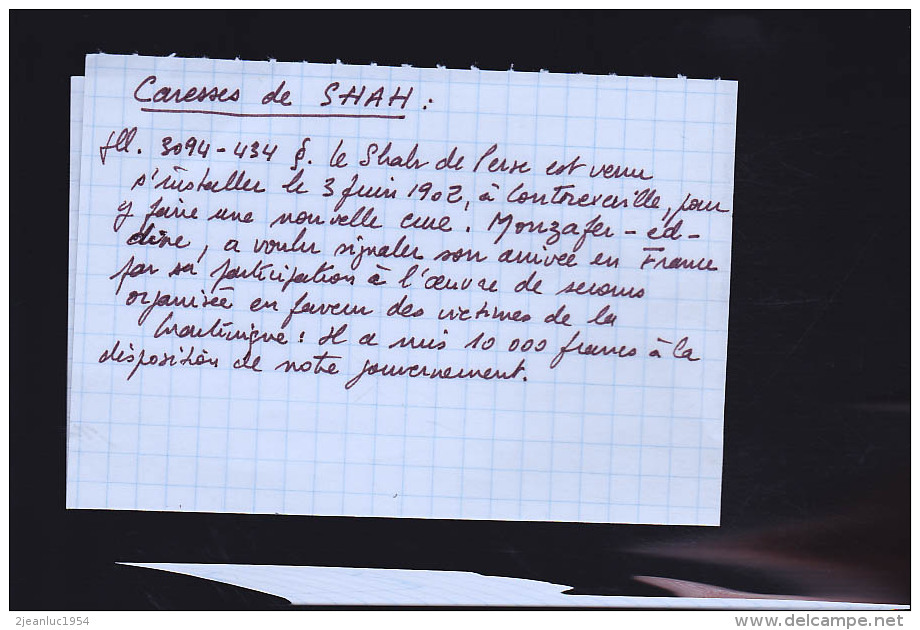 Caresses de SHAH :
Ill. 3094-434 §. Le Shah de Perse est venu
s'installer le 3 Juin 1902, à Contrexeville, pour
y faire une nouvelle cure. Mouzafer-ed-
dine, a voulu signaler son arrivée en France
par sa participation à l'œuvre de secours
organisée en faveur des victimes de la
Martinique : il a mis 10 000 francs à la
disposition de notre gouvernement.
2jeanluc1954
delcampe.net